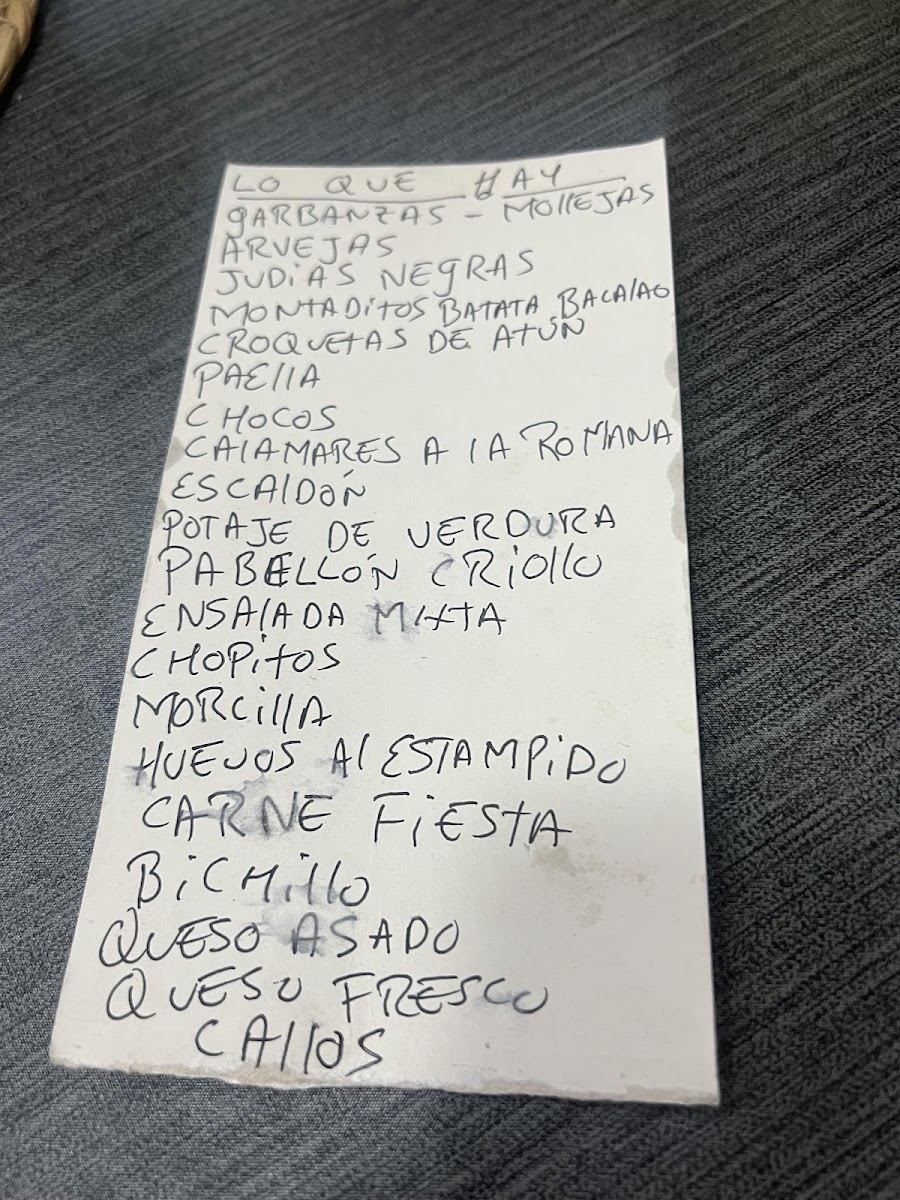 LO QUE HAY
GARBANZAS - MOllEJAS
ARVEJAS
JUDiAS NEGRAS
MONTADiTOS BATATA BACAlAO
CROQUETAS DE ATÚN
PAEllA
CHOCOS
CAlAMARES A lA ROMANA
ESCAlDÓN
POTAJE DE VERDURA
PABELLÓN CRiOllO
ENSAlADA MiXTA
CHOPiTOS
MORCillA
HUEVOS Al ESTAMPiDO
CARNE FiESTA
BiCHillO
QUESO ASADO
QUESO FRESCO
CAllOS